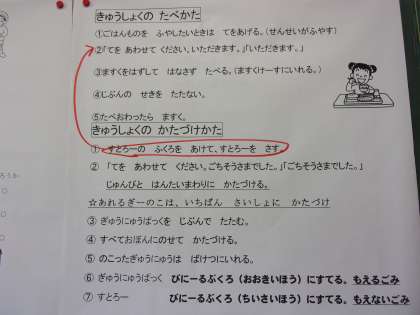 きゅうしょくの たべかた
①ごはんものを ふやしたいときは てをあげる。(せんせいがふやす)
②「てを あわせて ください、いただきます。」「いただきます。」
③ますくをはずして はなさず たべる。(ますくけーすにいれる。)
④じぶんの せきを たたない。
⑤たべおわったら ますく。
きゅうしょくの かたづけかた
① すとろーの ふくろを あけて、すとろーを さす。
② 「てを あわせて ください。ごちそうさまでした。」「ごちそうさまでした。」
じゅんびと はんたいまわりに かたづける。
☆あれるぎーのこは、いちばん さいしょに かたづけ
③ ぎゅうにゅうぱっくを じぶんで たたむ。
④ すべておぼんにのせて かたづける。
⑤ のこったぎゅうにゅうは ばけつにいれる。
⑥ ぎゅうにゅうぱっく びにーるぶくろ(おおきいほう)にすてる。もえるごみ
⑦ すとろー びにーるぶくろ(ちいさいほう)にすてる。もえないごみ